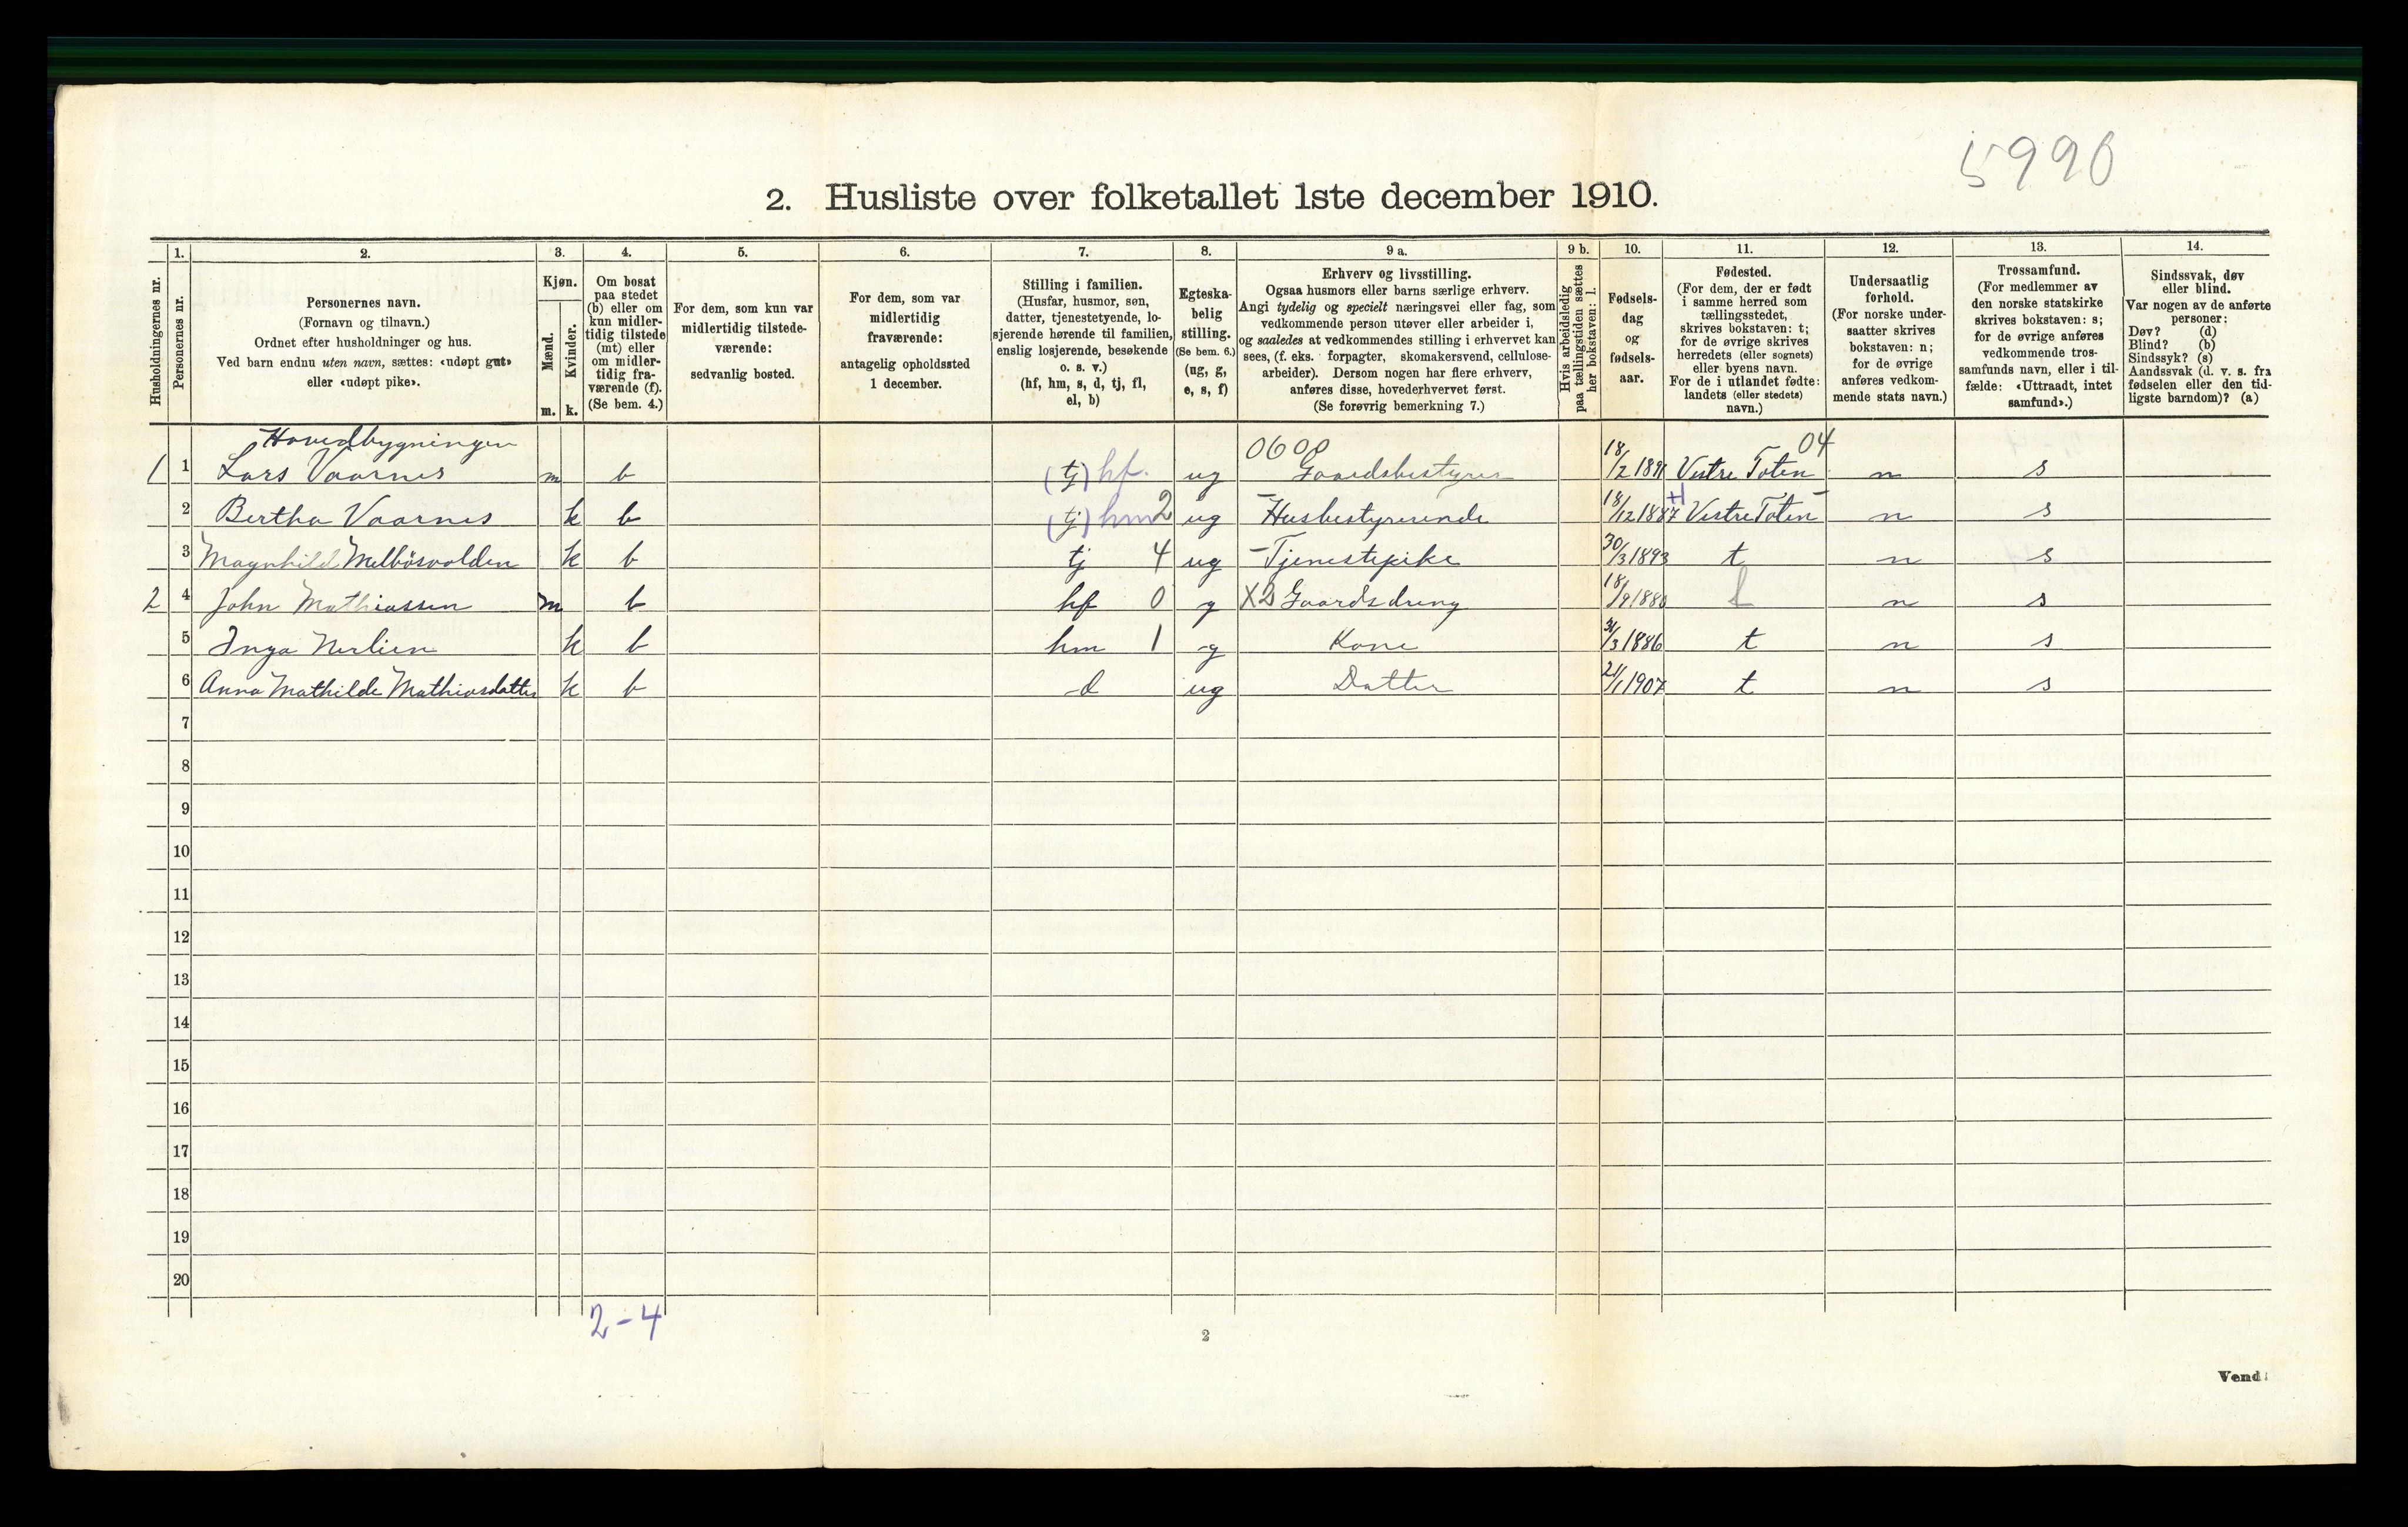 5990
2. Husliste over folketallet 1ste december 1910.
Husholdningernes nr.
1. Personernes nr.
2. Personernes navn.
(Fornavn og tilnavn.)
Ordnet efter husholdninger og hus.
Ved barn endnu uten navn, sættes: «udøpt gut»
eller «udøpt pike».
3. Kjøn.
Mænd. m.
Kvinder. k.
4. Om bosat
paa stedet
(b) eller om
kun midler-
tidig tilstede
(mt) eller
om midler-
tidig fra-
værende (f).
(Se bem. 4.)
5. For dem, som kun var
midlertidig tilstede-
værende:
sedvanlig bosted.
6. For dem, som var
midlertidig
fraværende:
antagelig opholdssted
1 december.
7. Stilling i familien.
(Husfar, husmor, søn,
datter, tjenestetyende, lo-
sjerende hørende til familien,
enslig losjerende, besøkende
o. s. v.)
(hf, hm, s, d, tj, fl,
el, b)
8. Egteska-
belig
stilling.
(Se bem. 6.)
(ug, g,
e, s, f)
9 a. Erhverv og livsstilling.
Ogsaa husmors eller barns særlige erhverv.
Angi tydelig og specielt næringsvei eller fag, som
vedkommende person utøver eller arbeider i,
og saaledes at vedkommendes stilling i erhvervet kan
sees, (f. eks. forpagter, skomakersvend, cellulose-
arbeider). Dersom nogen har flere erhverv,
anføres disse, hovederhvervet først.
(Se forøvrig bemerkning 7.)
9 b. Hvis arbeidsledig
paa tællingstiden sættes
her bokstaven: l.
10. Fødsels-
dag
og
fødsels-
aar.
11. Fødested.
(For dem, der er født
i samme herred som
tællingsstedet,
skrives bokstaven: t;
for de øvrige skrives
herredets (eller sognets)
eller byens navn.
For de i utlandet fødte:
landets (eller stedets)
navn.)
12. Undersaatlig
forhold.
(For norske under-
saatter skrives
bokstaven: n;
for de øvrige
anføres vedkom-
mende stats navn.)
13. Trossamfund.
(For medlemmer av
den norske statskirke
skrives bokstaven: s;
for de øvrige anføres
vedkommende tros-
samfunds navn, eller i til-
fælde: «Uttraadt, intet
samfund».)
14. Sindssvak, døv
eller blind.
Var nogen av de anførte
personer:
Døv? (d)
Blind? (b)
Sindssyk? (s)
Aandssvak (d. v. s. fra
fødselen eller den tid-
ligste barndom)? (a)
Hovedbygningen 0600 04
1 1 Lars Vaarnes m b (tj) hf. ug Gaardsbestyrer 18/2 1891 Vestre Toten n s
2 Bertha Vaarnes k b (tj) hm 2 ug - Husbestyrerinde 18/12 1887 Vestre Toten - n s
3 Magnhild Melbösvolden k b tj 4 ug - Tjenestepike 30/3 1893 t n s
2 4 John Mathiassen m b hf 0 g X2 Gaardsdreng 18/9 188 n s
5 Inga Nerlien k b hm 1 g Kone 31/3 1886 t n s
6 Anna Mathilde Mathiasdatter k b d ug Datter 21/1 1907 t n s
7
8
9
10
11
12
13
14
15
16
17
18
19
20
2-4
2
Vend!